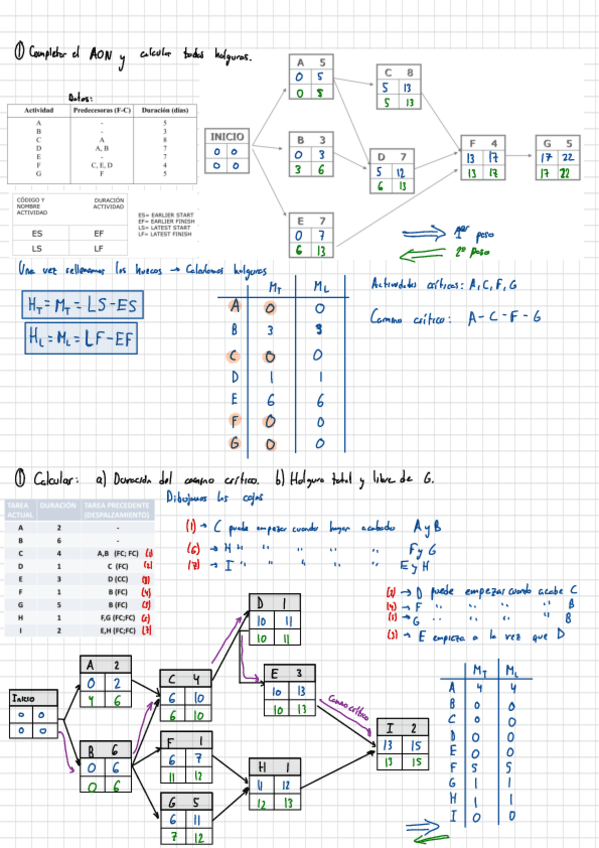 ① Completar el AON y calcular todas holguras.
Datos:
Actividad Predecesoras (F-C) Duración (días)
A - 5
B - 3
C A 8
D A, B 7
E - 7
F C, E, D 4
G F 5
CÓDIGO Y NOMBRE ACTIVIDAD DURACIÓN ACTIVIDAD
ES EF
LS LF
ES= EARLIER START
EF= EARLIER FINISH
LS= LATEST START
LF= LATEST FINISH
INICIO
0 0
0 0
A 5
0 5
0 5
B 3
0 3
3 6
E 7
0 7
6 13
C 8
5 13
5 13
D 7
5 12
6 13
F 4
13 17
13 17
G 5
17 22
17 22
1er paso
2º paso
Una vez rellenamos los huecos → Calculamos holguras
HT = MT = LS - ES
HL = ML = LF - EF
MT ML
A 0 0
B 3 3
C 0 0
D 1 1
E 6 6
F 0 0
G 0 0
Actividades críticas: A, C, F, G
Camino crítico: A - C - F - G
① Calcular: a) Duración del camino crítico. b) Holgura total y libre de G.
Dibujamos las cajas
TAREA ACTUAL DURACIÓN TAREA PRECEDENTE (DESPALZAMIENTO)
A 2 -
B 6 -
C 4 A,B (FC; FC) (1)
D 1 C (FC) (2)
E 3 D (CC) (3)
F 1 B (FC) (4)
G 5 B (FC) (5)
H 1 F,G (FC;FC) (6)
I 2 E,H (FC;FC) (7)
(1) → C puede empezar cuando hayan acabado A y B
(6) → H " " " " " F y G
(7) → I " " " " " E y H
→ D puede empezar cuando acabe C
(4) → F " " " " B
→ G " " " " B
(3) → E empieza a la vez que D
Inicio
0 0
0 0
A 2
0 2
4 6
B 6
0 6
0 6
C 4
6 10
6 10
F 1
6 7
11 12
G 5
6 11
7 12
D 1
10 11
10 11
E 3
10 13
10 13
H 1
11 12
12 13
Camino crítico
I 2
13 15
13 15
MT ML
A 4 4
B 0 0
C 0 0
D 0 0
E 0 0
F 5 5
G 1 1
H 1 1
I 0 0